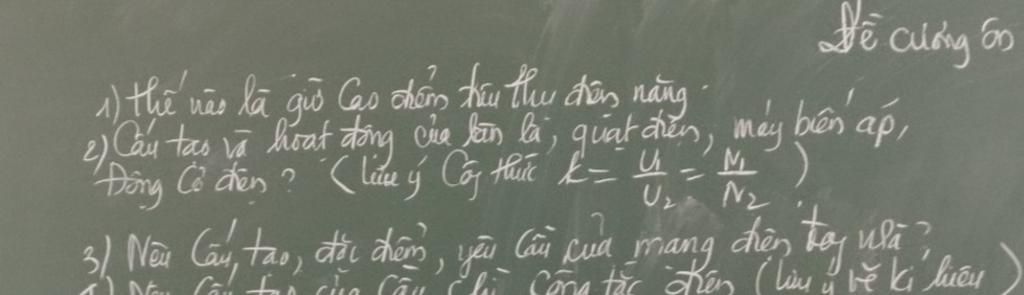 Đề cương ôn
1) Thế nào là giờ cao điểm tiêu thụ điện năng.
2) Cấu tạo và hoạt động của bàn là, quạt điện, máy biến áp,
Động cơ điện? (lưu ý Công thức k = U1/U2 = N1/N2)
3) Nêu Cấu tạo, đặc điểm, yêu cầu của mạng điện trong nhà?
4) Nêu Cấu tạo của Cầu chì Công tắc điện (lưu ý vẽ kí hiệu)